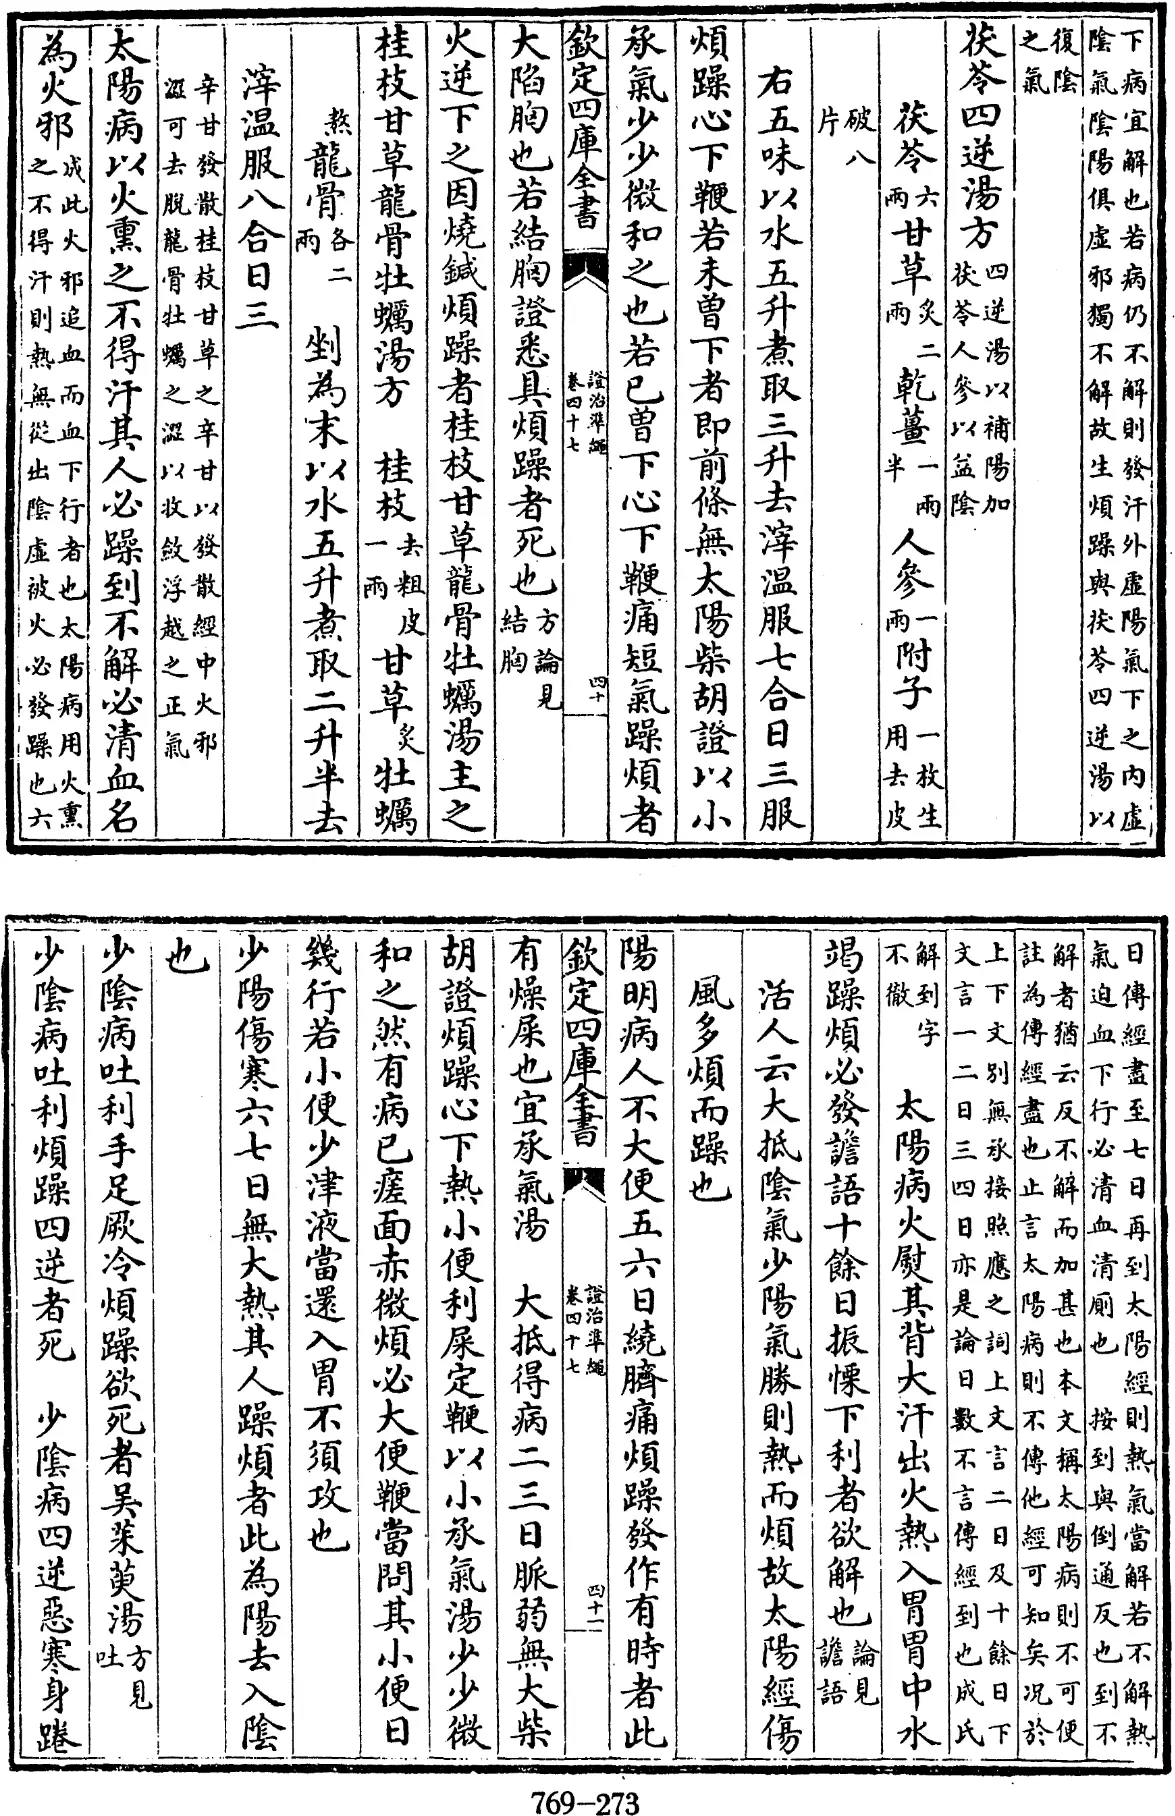 下病宜解也若病仍不解則發汗外虛陽氣下之内虛
陰氣陰陽俱虛邪獨不解故生煩躁與茯苓四逆湯以
復陰
之氣
茯苓四逆湯方四逆湯以補陽加
茯苓人參以益陰
茯苓六兩甘草炙二兩乾薑一兩半人參一兩附子一枚生用去皮
破八
片
右五味以水五升煮取三升去滓温服七合日三服
煩躁心下鞕若未曾下者即前條無太陽柴胡證以小
承氣少少微和之也若已曾下心下鞕痛短氣躁煩者
欽定四庫全書
證治準繩
卷四十七
四十
大陷胸也若結胸證悉具煩躁者死也方論見
結胸
火逆下之因燒鍼煩躁者桂枝甘草龍骨牡蠣湯主之
桂枝甘草龍骨牡蠣湯方 桂枝去粗皮一兩甘草炙牡蠣
熬龍骨各二兩 剉為末以水五升煮取二升半去
滓温服八合日三
辛甘發散桂枝甘草之辛甘以發散經中火邪
澀可去脱龍骨牡蠣之澀以收斂浮越之正氣
太陽病以火熏之不得汗其人必躁到不解必清血名
為火邪成此火邪追血而血下行者也太陽病用火熏
之不得汗則熱無從出陰虛被火必發躁也六
日傳經盡至七日再到太陽經則熱氣當解若不解熱
氣迫血下行必清血清厠也 按到與倒通反也到不
解者猶云反不解而加甚也本文稱太陽病則不可便
註為傳經盡也止言太陽病則不傳他經可知矣况於
上下文别無承接照應之詞上文言二日及十餘日下
文言一二日三四日亦是論日數不言傳經到也成氏
解到字
不徹
太陽病火熨其背大汗出火熱入胃胃中水
竭躁煩必發譫語十餘日振慄下利者欲解也論見
譫語
活人云大抵陰氣少陽氣勝則熱而煩故太陽經傷
風多煩而躁也
陽明病人不大便五六日繞臍痛煩躁發作有時者此
欽定四庫全書
證治準繩
卷四十七
四十一
有燥屎也宜承氣湯 大抵得病二三日脈弱無大柴
胡證煩躁心下熱小便利屎定鞕以小承氣湯少少微
和之然有病已瘥面赤微煩必大便鞕當問其小便日
幾行若小便少津液當還入胃不須攻也
少陽傷寒六七日無大熱其人躁煩者此為陽去入陰
也
少陰病吐利手足厥冷煩躁欲死者吳茱萸湯方見
吐
少陰病吐利煩躁四逆者死 少陰病四逆惡寒身踡
769-273